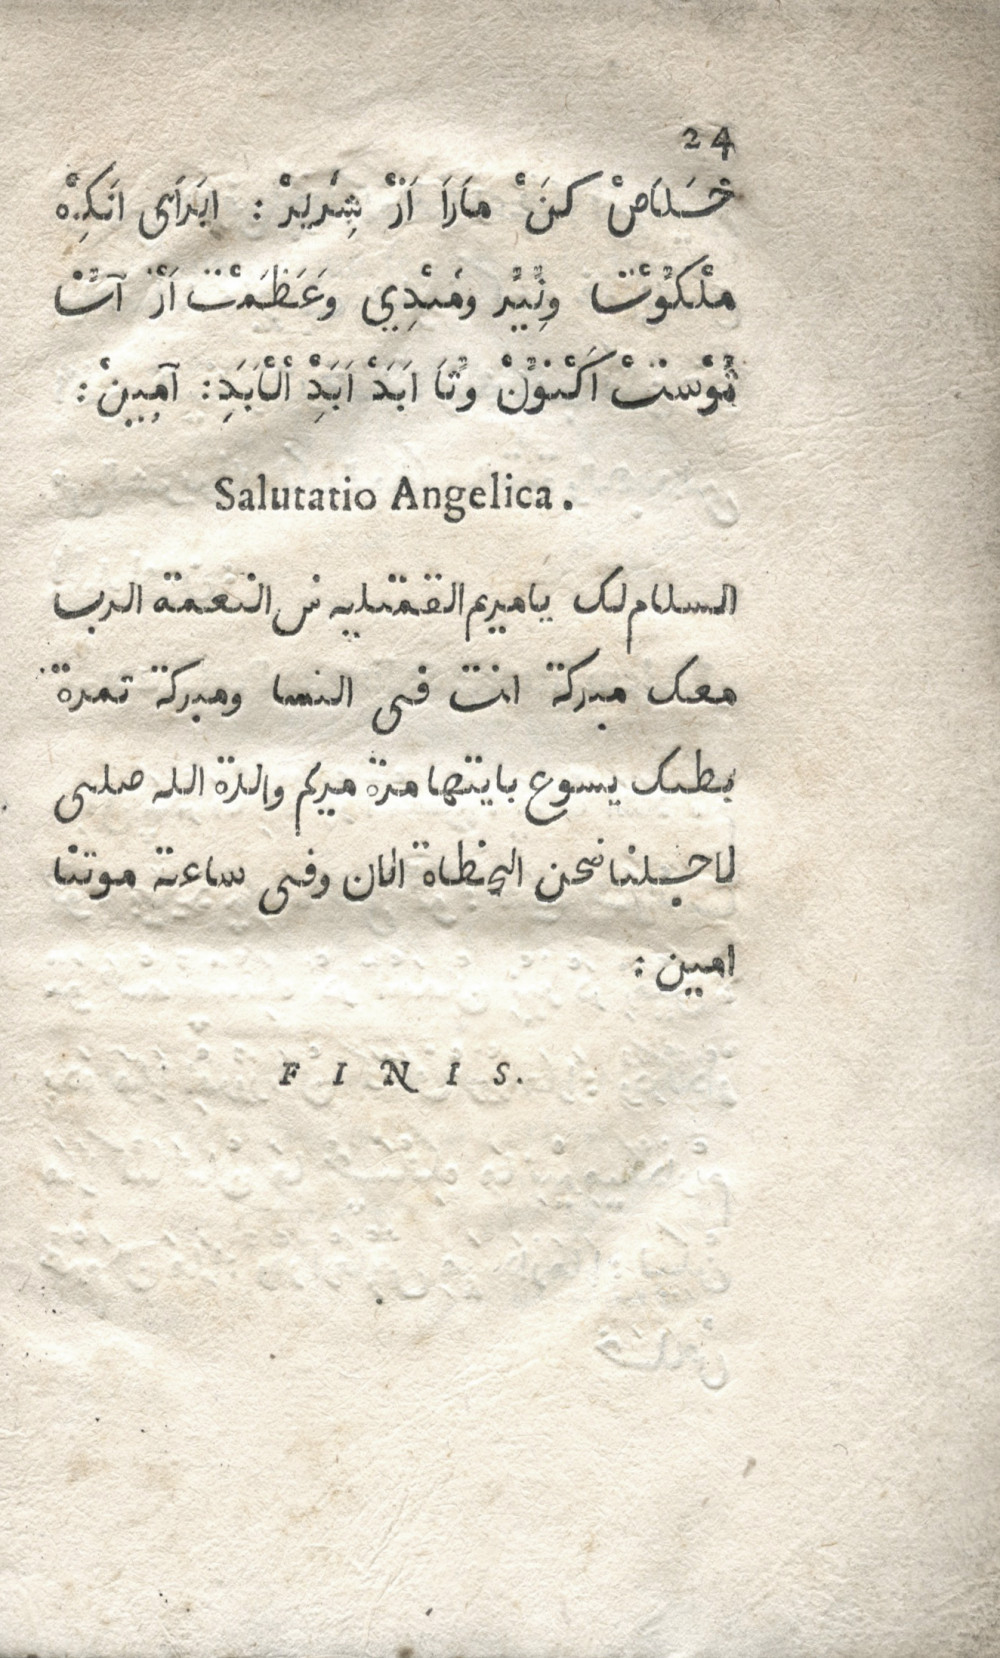 24
خَلَاصْ كنَ مَارَا اَزْ شِرَيرْ : ابَرَاى انَكِهْ
مَلْكُوْتْ وِنُيرُ ومَندِي وَعَظَمَتْ اَزْ آنْ
تُوْستْ اَكْنوُنْ وَتَا اَبَدْ اَبَدِ اْلْاَبَدِ : آمِينْ :
Salutatio Angelica .
السلام لك يا ميرم القمتليه من النعمة الرب
معك مبركة انت فى النسا ومبركة تمرة
بطنك يسوع يا يتها مرة ميرم والدة الله صلى
لاجلنا نحن الخطاة الان وفى ساعة موتنا
امين :
F I N I S .